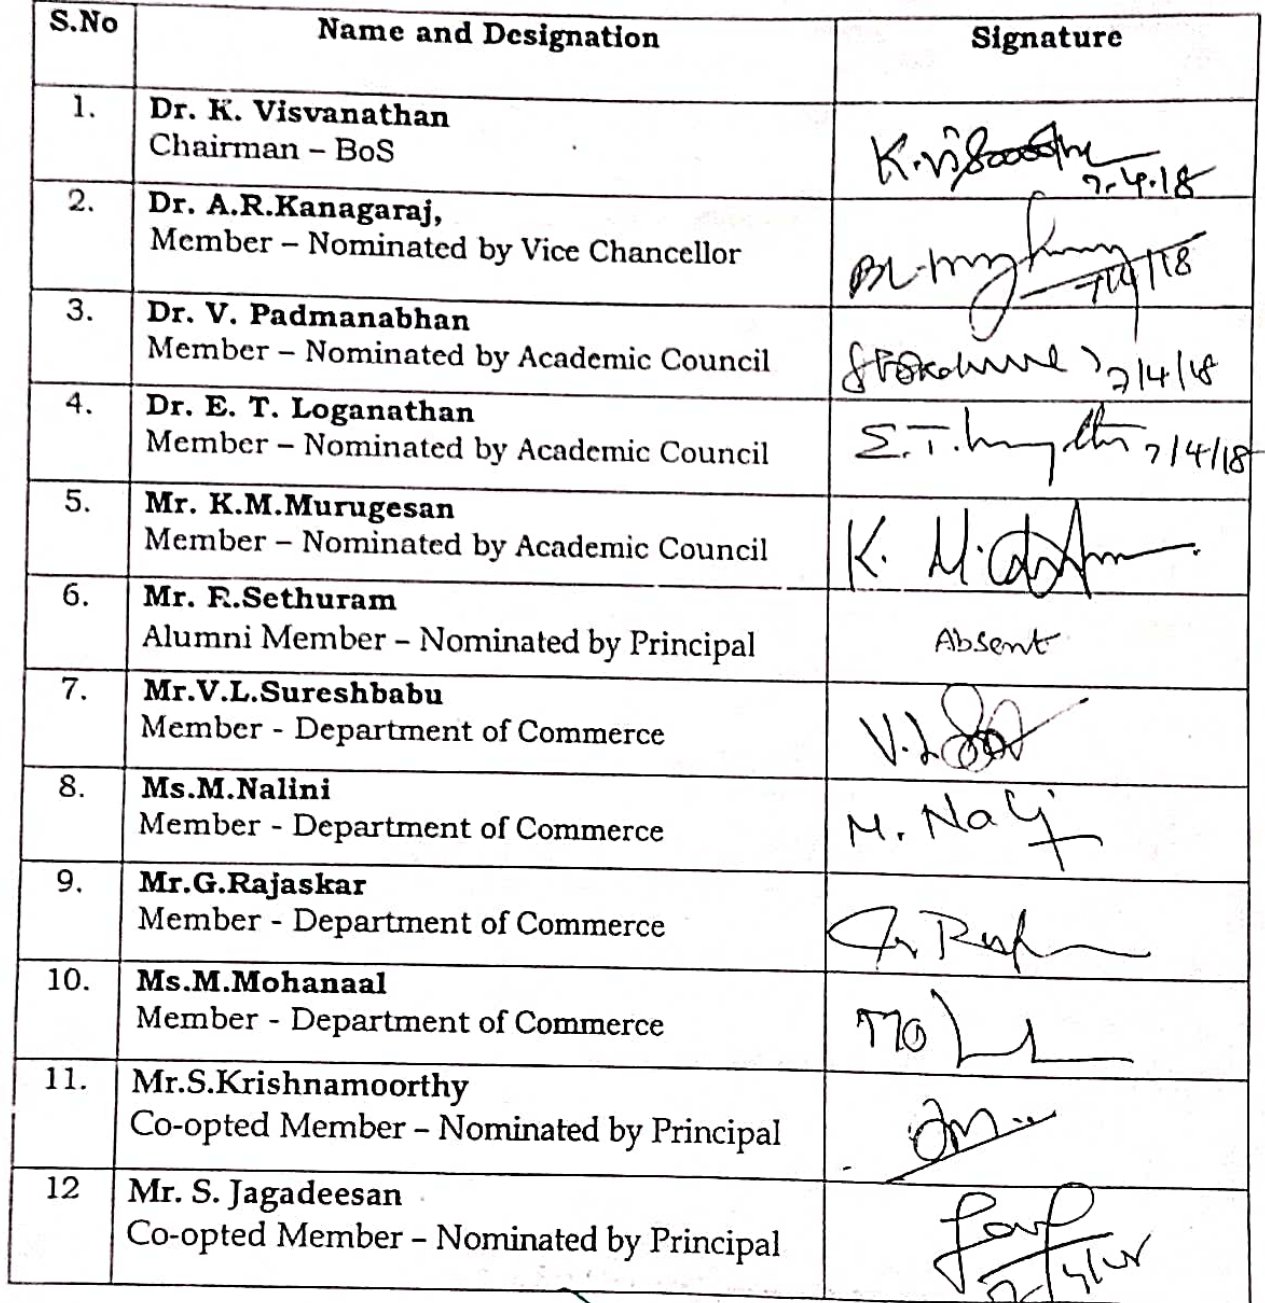 S.No Name and Designation Signature
1. Dr. K. Visvanathan
Chairman – BoS
7.4.18
2. Dr. A.R.Kanagaraj,
Member – Nominated by Vice Chancellor
7/4/18
3. Dr. V. Padmanabhan
Member – Nominated by Academic Council
7/4/18
4. Dr. E. T. Loganathan
Member – Nominated by Academic Council
E.T. 7/4/18
5. Mr. K.M.Murugesan
Member – Nominated by Academic Council
K. M.
6. Mr. R.Sethuram
Alumni Member – Nominated by Principal
Absent
7. Mr.V.L.Sureshbabu
Member - Department of Commerce
V.L
8. Ms.M.Nalini
Member - Department of Commerce
M.
9. Mr.G.Rajaskar
Member - Department of Commerce
10. Ms.M.Mohanaal
Member - Department of Commerce
11. Mr.S.Krishnamoorthy
Co-opted Member – Nominated by Principal
12 Mr. S. Jagadeesan
Co-opted Member – Nominated by Principal